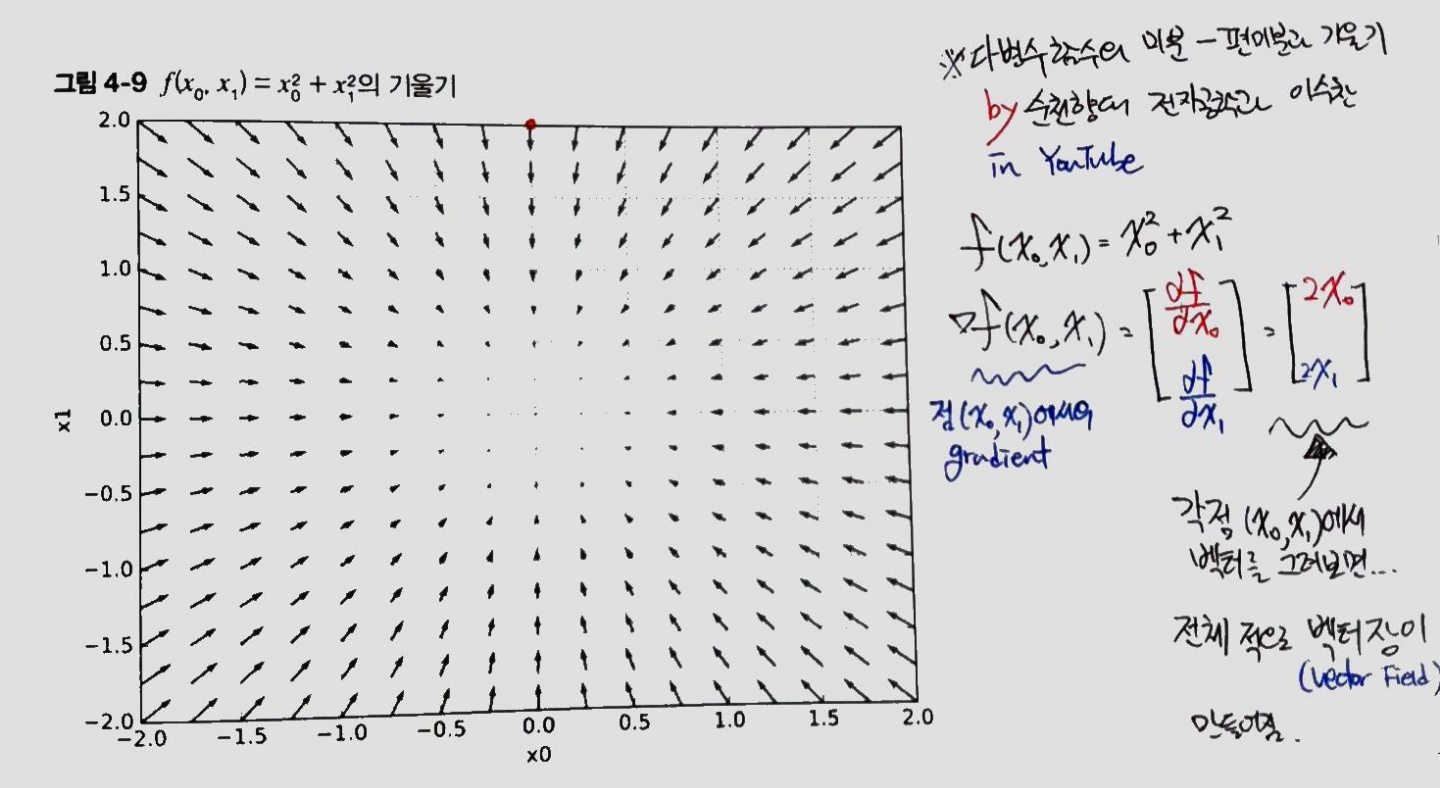 그림 4-9 f(x₀, x₁) = x₀² + x₁²의 기울기
2.0
1.5
1.0
0.5
0.0
−0.5
−1.0
−1.5
−2.0
x1
−2.0 −1.5 −1.0 −0.5 0.0 0.5 1.0 1.5 2.0
x0
※ 다변수함수의 미분 - 편미분과 기울기
by 순천향대 전자공학과 이수찬
in YouTube
f(x₀, x₁) = x₀² + x₁²
∇f(x₀, x₁) = [df/dx₀ df/dx₁] = [2x₀ 2x₁]
점(x₀, x₁)에서의
gradient
각 점 (x₀, x₁)에서
벡터를 그려보면...
전체적으로 벡터장이
(Vector Field)
만들어짐.